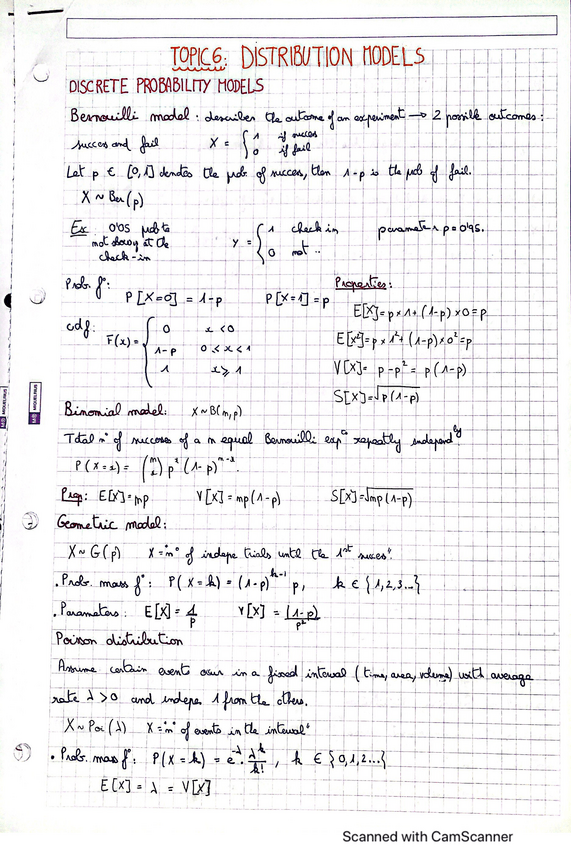 TOPIC 6: DISTRIBUTION MODELS
DISCRETE PROBABILITY MODELS
Bernouilli model: describes the outcome of an experiment → 2 possible outcomes:
succes and fail X = { 1 if succes
0 if fail
Let p ∈ [0,1] denotes the prob. of succes, then 1-p is the prob of fail.
X ~ Ber(p)
Ex 0'05 prob to
not at the
check-in
Y = { 1 check in
0 not ..
parameter p = 0'95.
Prob. fⁿ:
P[X=0] = 1-p P[X=1] = p
cdf: F(x) = { 0 x < 0
1-p 0 ≤ x < 1
1 x ≥ 1
Properties:
E[X] = p × 1 + (1-p) × 0 = p
E[X²] = p × 1² + (1-p) × 0² = p
V[X] = p - p² = p(1-p)
S[X] = √p(1-p)
MIQUELRIUS
Binomial model: X ~ B(n,p)
Total nº of succeses of a n equal Bernouilli expᵃ repeatly independˡʸ.
P(X=x) = (n x) pˣ (1-p)ⁿ⁻ˣ.
Prop: E[X] = np V[X] = np(1-p) S[X] = √np(1-p)
Geometric model:
X ~ G(p) X = "nº of indepe trials until the 1st succes"
• Prob. mass fⁿ: P(X=k) = (1-p)ᵏ⁻¹ p, k ∈ {1,2,3...}
• Parameters: E[X] = 1/p V[X] = (1-p)/p²
Poisson distribution
Assume certain events occur in a fixed interval (time, area, volume) with average
rate λ > 0 and indepe. 1 from the others.
X ~ Poi(λ) X = "nº of events in the interval"
• Prob. mass fⁿ: P(X=k) = e^-λ · λᵏ/k!, k ∈ {0,1,2...}
E[X] = λ = V[X]
Scanned with CamScanner